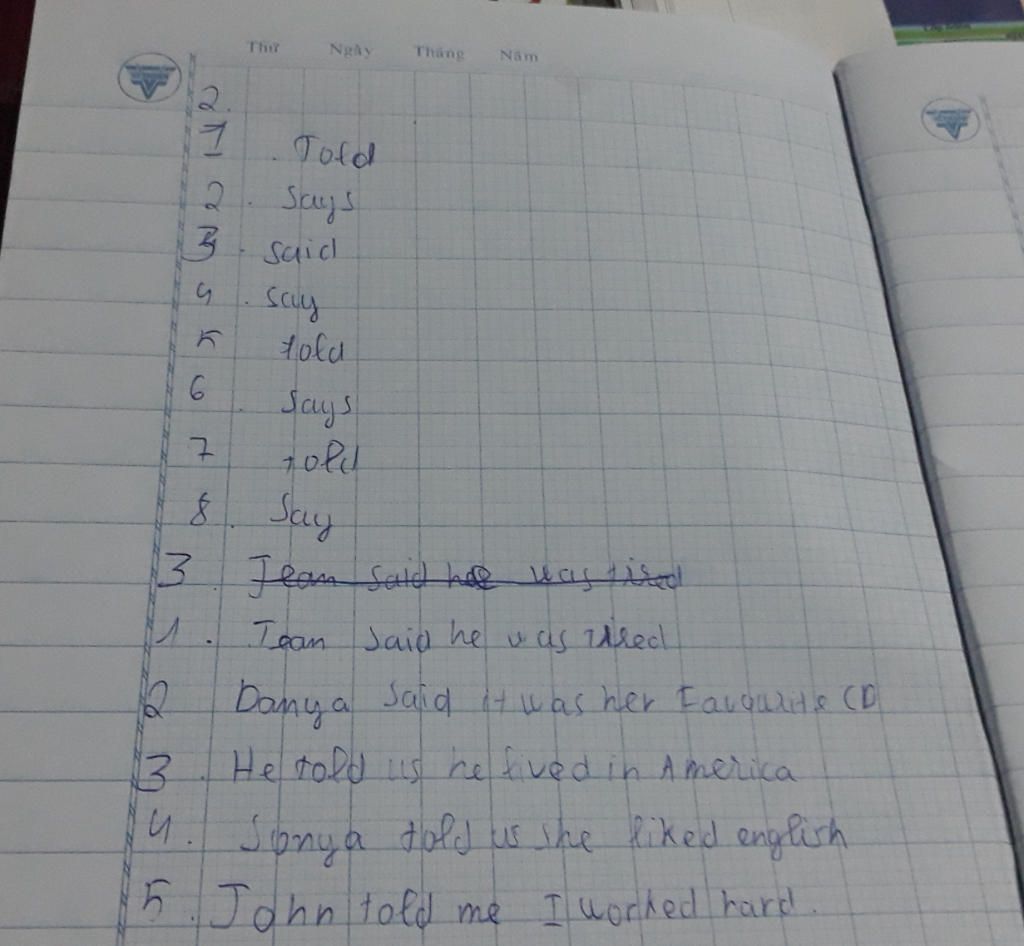 Thứ Ngày Tháng Năm
2.
1. Told
2. Says
3. said
4. say
5 told
6. Says
7 told
8. Say
3. Jean said he was tired
1. Jean said he was tired
2 Danya said it was her Favourite CD
3. He told us he lived in America
4. Sonya told us she liked english
5. John told me I worked hard.